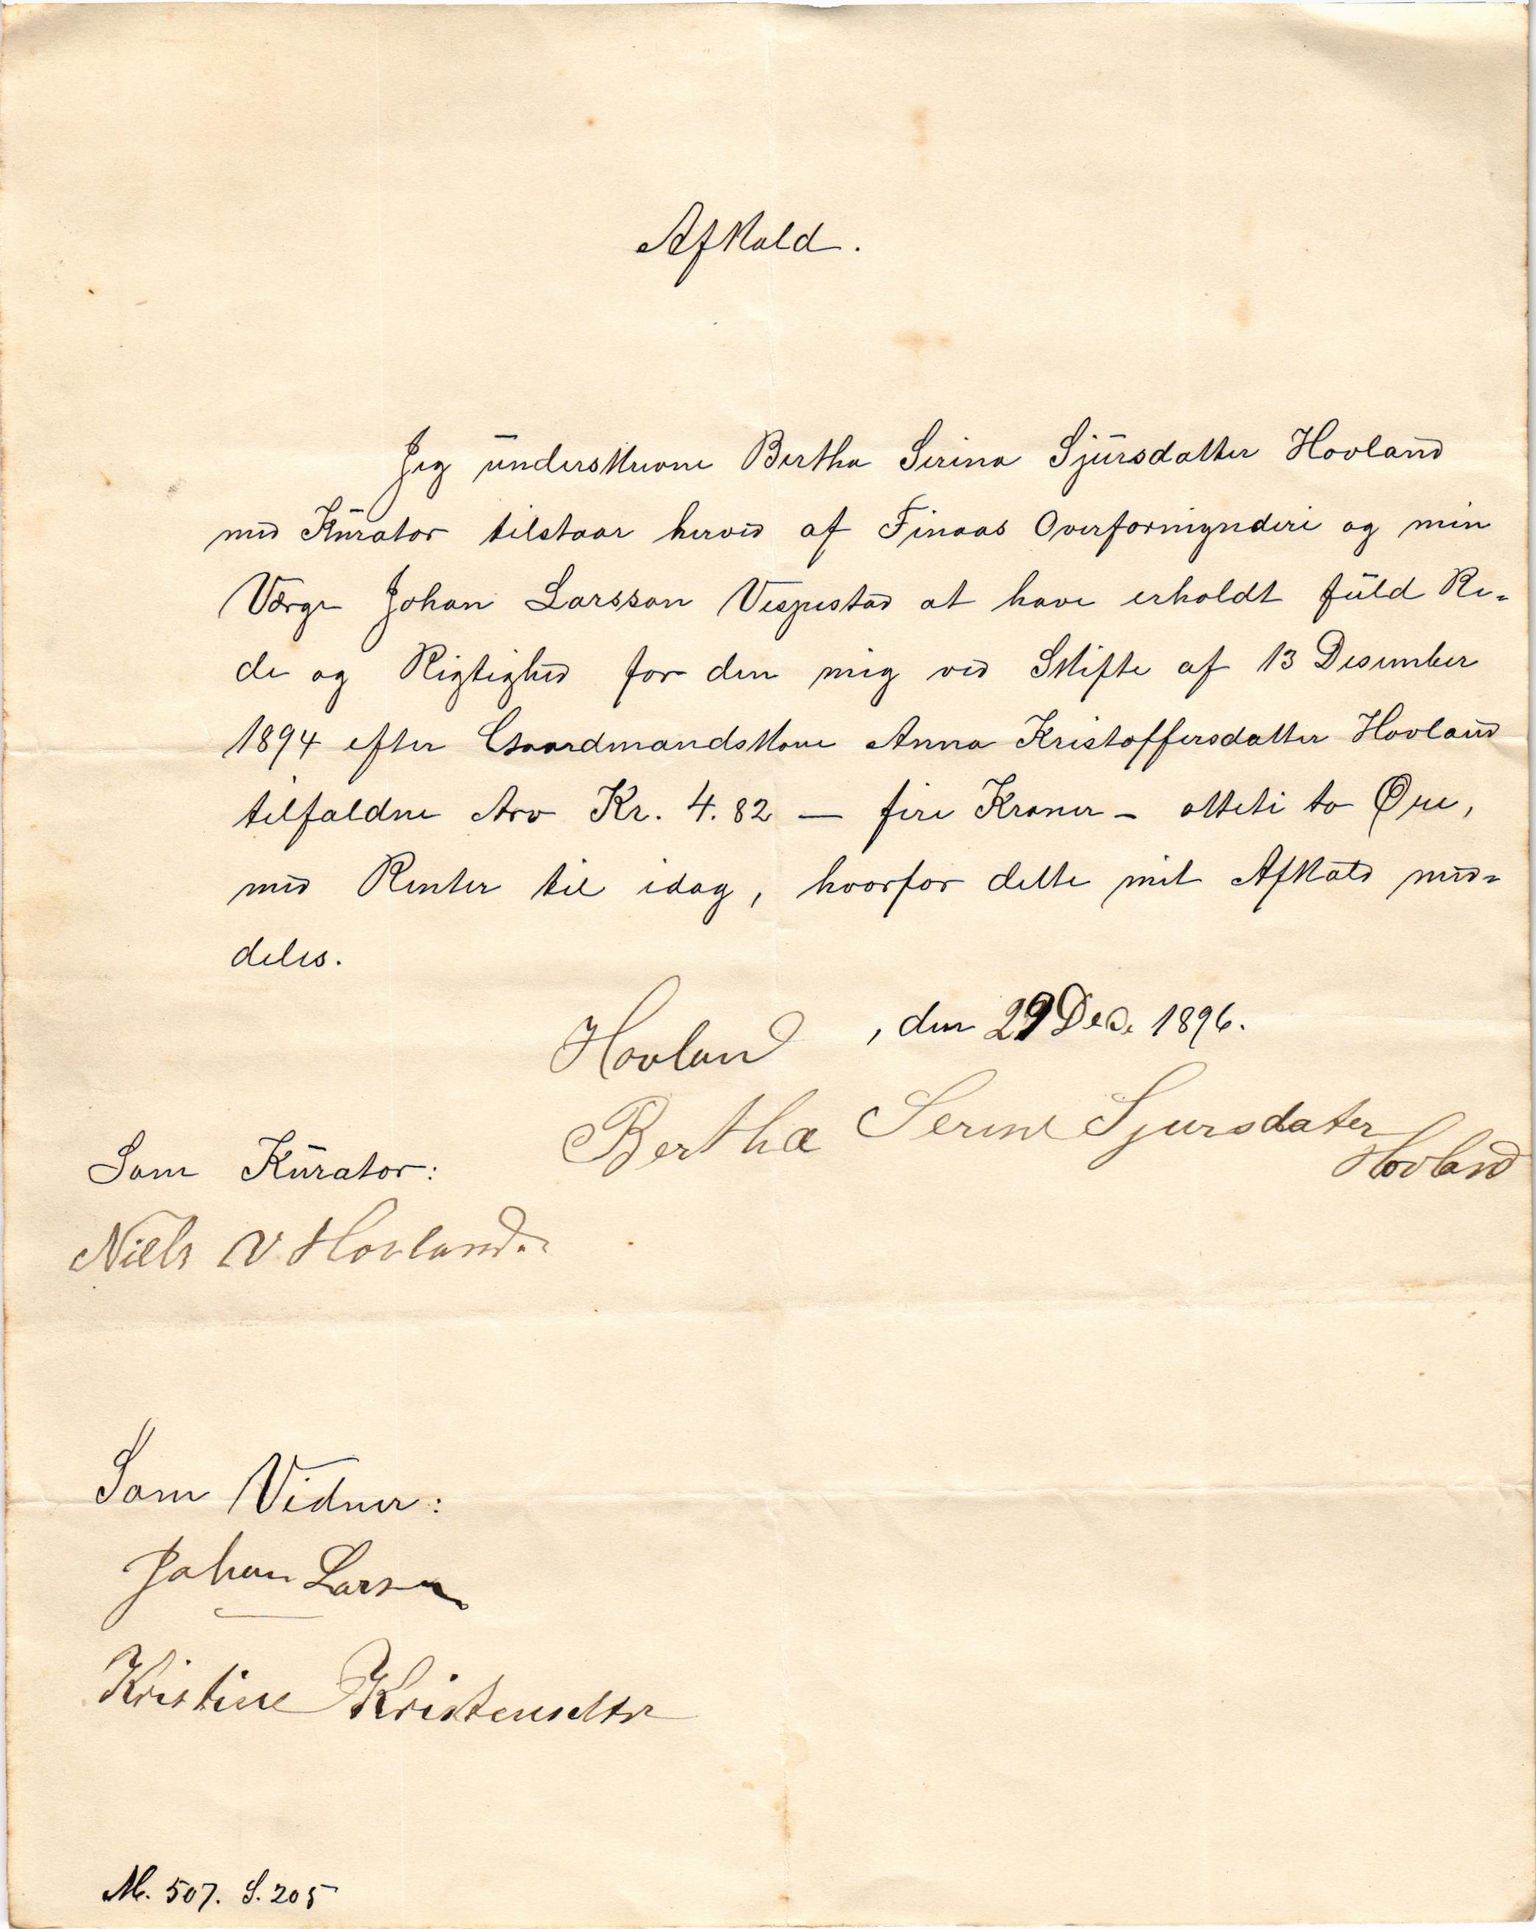 Afkald.
Jeg underskrevne Bertha Serina Sjursdatter Hovland
med Kurator tilstaar herved af Finaas Overformynderi og min
Værge Johan Larsson Vespestad at have erholdt fuld Re-
de og Rigtighed for den mig ved Skifte af 13 Desember
1894 efter Gaardmandskone Anna Kristoffersdatter Hovland
tilfaldne Arv Kr. 4.82 — fire Kroner – otteti to Øre,
med Renter til idag, hvorfor dette mit Afkald med-
deles.
Hovland , den 29 Dec. 1896.
Bertha Serine Sjursdater
Hovland
Som Kurator:
Niels N Hovland.
Som Vidner:
Johan Larsen
Kristine Kristensdtr
M. 507. S. 205